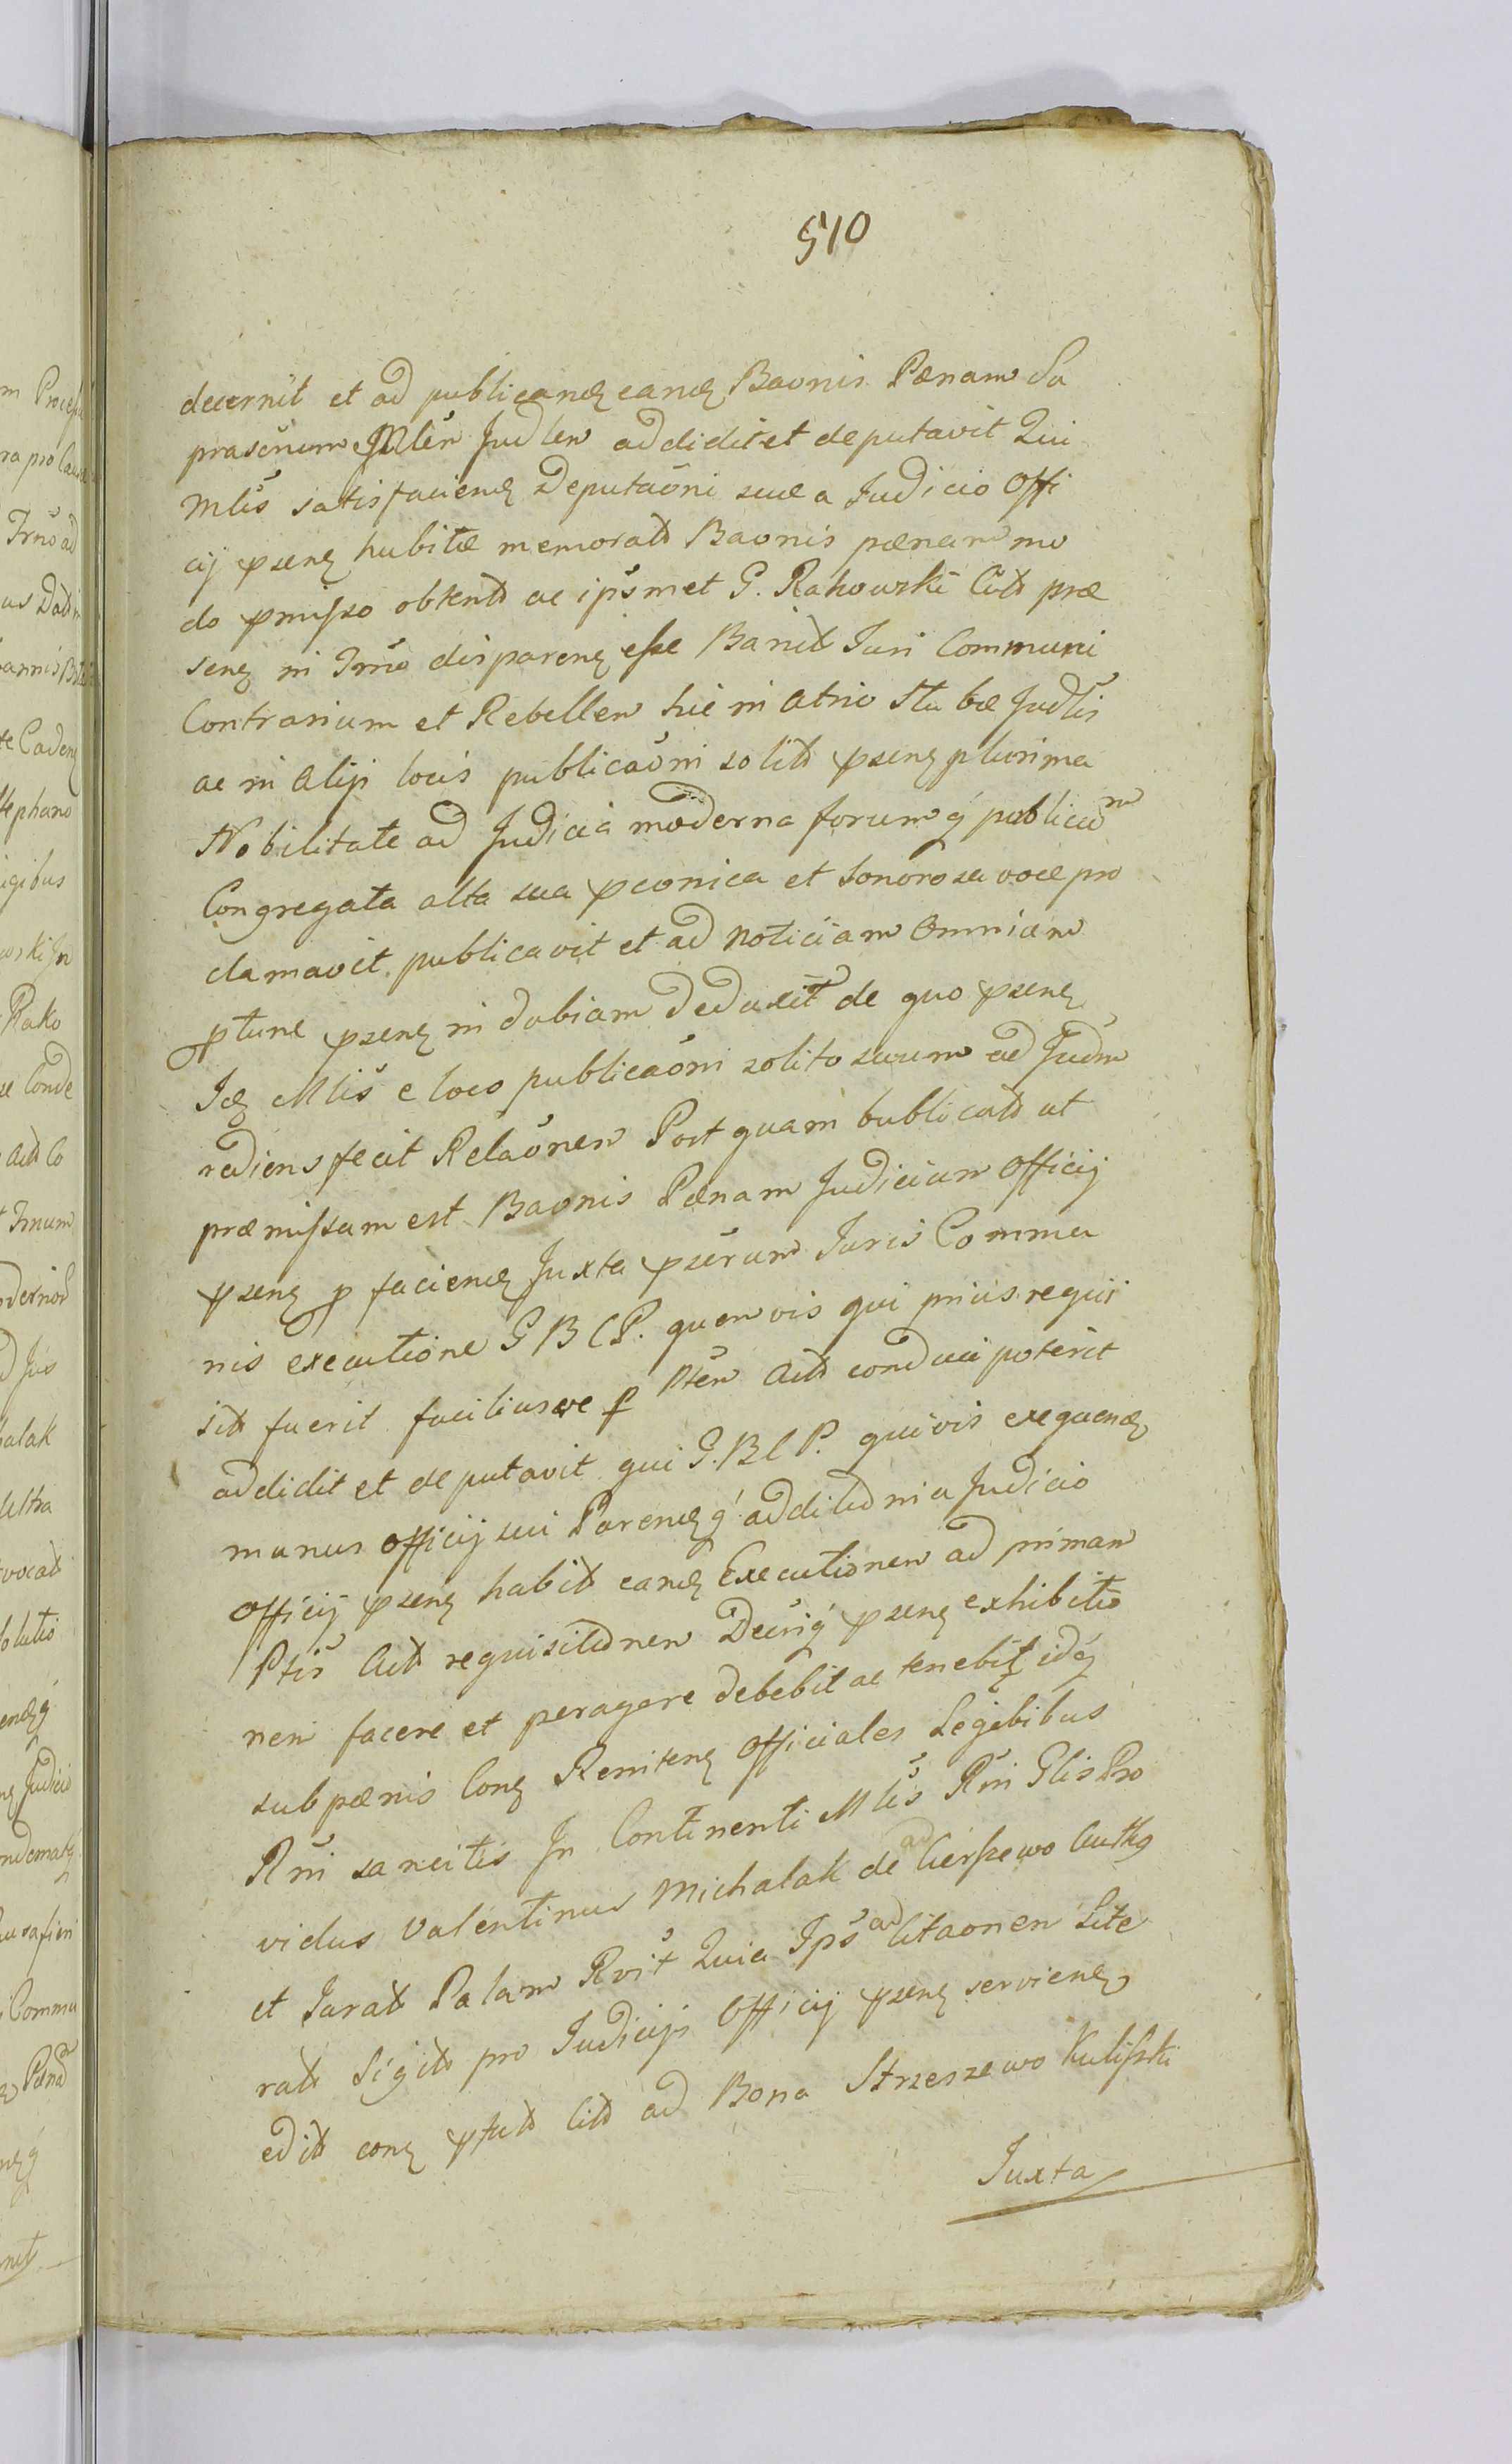 510
decernit et ad publicanđ eanđ Baonis Pænam Su
prasc̃num Mlem̃ Judlem addidit et deputavit Qui
Mlis̃ satisfacienđ Deputaõni suæ a Judicio Offi
cij psenţ habitæ memorat̃ Baonis pænam mo
do pmisso obtent̃ ac ipsmet G. Rakowski Citt̃ præ
senţ in Trno disparenţ esse Banit̃ Juri Communi
Contrarium et Rebellem hic in Atrio Stubæ Judlis̃
ac in Alijs locis publicaõni solit̃ psenţ plurima
Nobilitate ad Judicia moderna forumq́ publicum
Congregata alta sua pconica et Sonorosa voce pro
clamavit publicavit et ad noticiam Omnium
ptunc psenţ indubiam deduxit de quo psenţ
Idđ Mlis̃ e loco publicaõni solito suum ad Judm
rediens fecit Relaõnem Postquam bublicat̃ ut
præmissum est Baonis Pænam Judicium Officij
psenţ p facienđ Juxta pscrum Juris Commu
nis executione G B C P. quemvis qui prius requi
sit̃ fuerit faciliusve p Ptem̃ Act̃ conduci poterit
addidit et deputavit qui G. B C P. quivis exequenđ
munus officij sui Parenđq́ additioni a Judicio
Officij psenţ habit̃ eanđ Executionem ad primam
Ptis̃ Act̃ requisitionem Decriq́ psenţ exhibitio
nem facere et peragere debebit ac tenebit̃ idq́
sub pænis Conţ Renitenţ Officiales Legibibus
Rni sancitis In Continenti Mlis̃ Rni Glis Pro
vidus Valentinus Michalak de ad Cierszewo Auth
et Jurat̃ Palam Rvit Quia Ips̃ ad Citaonem Lite
rat̃ Sigit̃ pro Judicijs Officij psenţ servienđ
edit̃ conţ pfat̃ Cit̃ ad Bona Strzeszewo Kuliski
Juxta